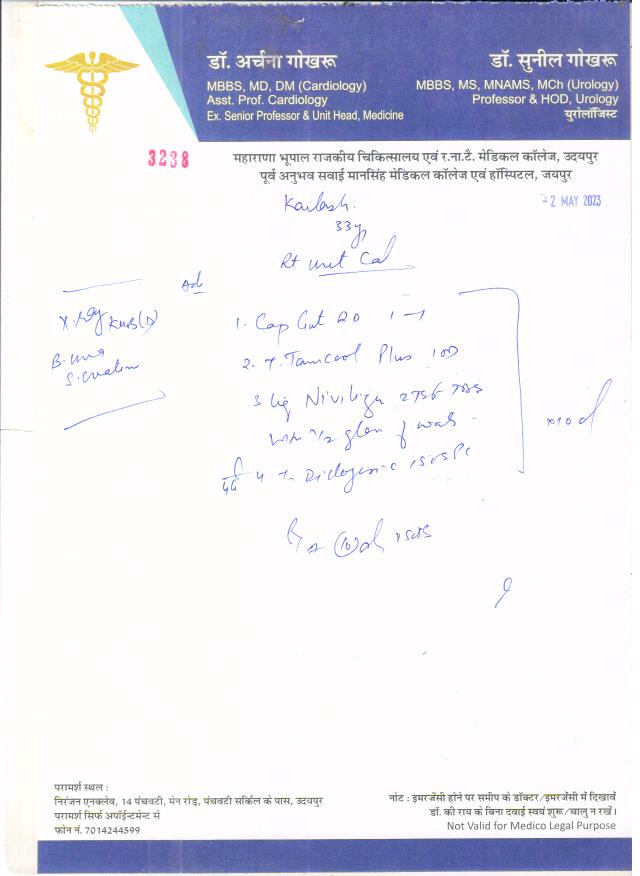 डॉ. अर्चना गोखरू
MBBS, MD, DM (Cardiology)
Asst. Prof. Cardiology
Ex. Senior Professor & Unit Head, Medicine
डॉ. सुनील गोखरू
MBBS, MS, MNAMS, MCh (Urology)
Professor & HOD, Urology
युरोलॉजिस्ट
3238
महाराणा भूपाल राजकीय चिकित्सालय एवं र.ना.टै. मेडिकल कॉलेज, उदयपुर
पूर्व अनुभव सवाई मानसिंह मेडिकल कॉलेज एवं हॉस्पिटल, जयपुर
2 MAY 2023
Kailash.
33y
Rt Cal
Ad
X-Ray KUB (D)
B. Urea
1. Cap 1-1
2. T. Plus 10D
3 TDS
with 1/2 glass of
4 T.
x10 d
परामर्श स्थल :
निरंजन एनक्लेव, 14 पंचवटी, मेन रोड़, पंचवटी सर्किल के पास, उदयपुर
परामर्श सिर्फ अपॉईन्टमेन्ट से
फोन नं. 7014244599
नोट : इमरजेंसी होने पर समीप के डॉक्टर/इमरजेंसी में दिखावें
डॉ. की राय के बिना दवाई स्वयं शुरू/चालु न रखें।
Not Valid for Medico Legal Purpose